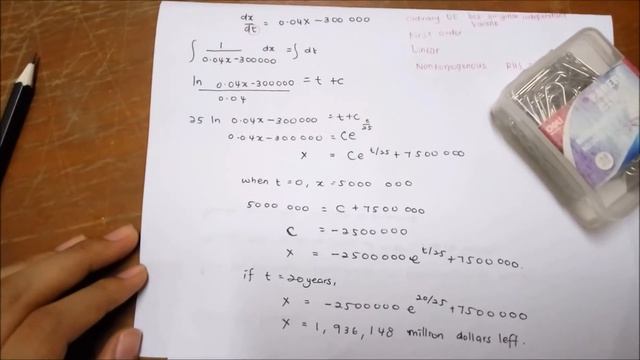 dx/dt = 0.04x - 300 000
∫ 1/(0.04x - 300000) dx = ∫ dt
ln 0.04x - 300000 / 0.04 = t + c
25 ln 0.04x - 300000 = t + c
0.04x - 300000 = Ce^(t/25)
x = Ce^(t/25) + 7500 000
when t = 0, x = 5000 000
5000 000 = C + 7500 000
C = -2500000
x = -2500000 e^(t/25) + 7500000.
if t = 20 years,
x = -2500000 e^(20/25) + 7500000
x = 1, 936, 148 million dollars left.
Ordinary DE bcs single independent
First order
Linear
RHS
deli